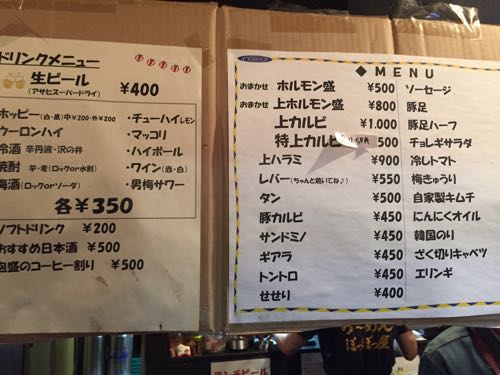 ドリンクメニュー
生ビール
(アサヒスーパードライ)
¥400
ホッピー(白・黒)中¥200・外¥200
・チューハイレモン
ウーロンハイ
・マッコリ
冷酒 辛丹波・沢の井
・ハイボール
焼酎 芋・麦(ロックor水割)
・ワイン(赤・白)
梅酒(ロックorソーダ)
・男梅サワー
各¥350
ソフトドリンク ¥200
おすすめ日本酒 ¥500
泡盛のコーヒー割り ¥500
◆MENU
おまかせ ホルモン盛 ¥500
おまかせ 上ホルモン盛 ¥800
上カルビ ¥1.000
特上カルビ 500
上ハラミ ¥900
レバー(ちゃんと焼いてね♪) ¥550
タン ¥500
豚カルビ ¥450
サンドミノ ¥450
ギアラ ¥450
トントロ ¥450
せせり ¥400
ソーセージ
豚足
豚足ハーフ
チョレギサラダ
冷しトマト
梅きゅうり
自家製キムチ
にんにくオイル
韓国のり
ざく切りキャベツ
エリンギ
らーめん
ランチビール